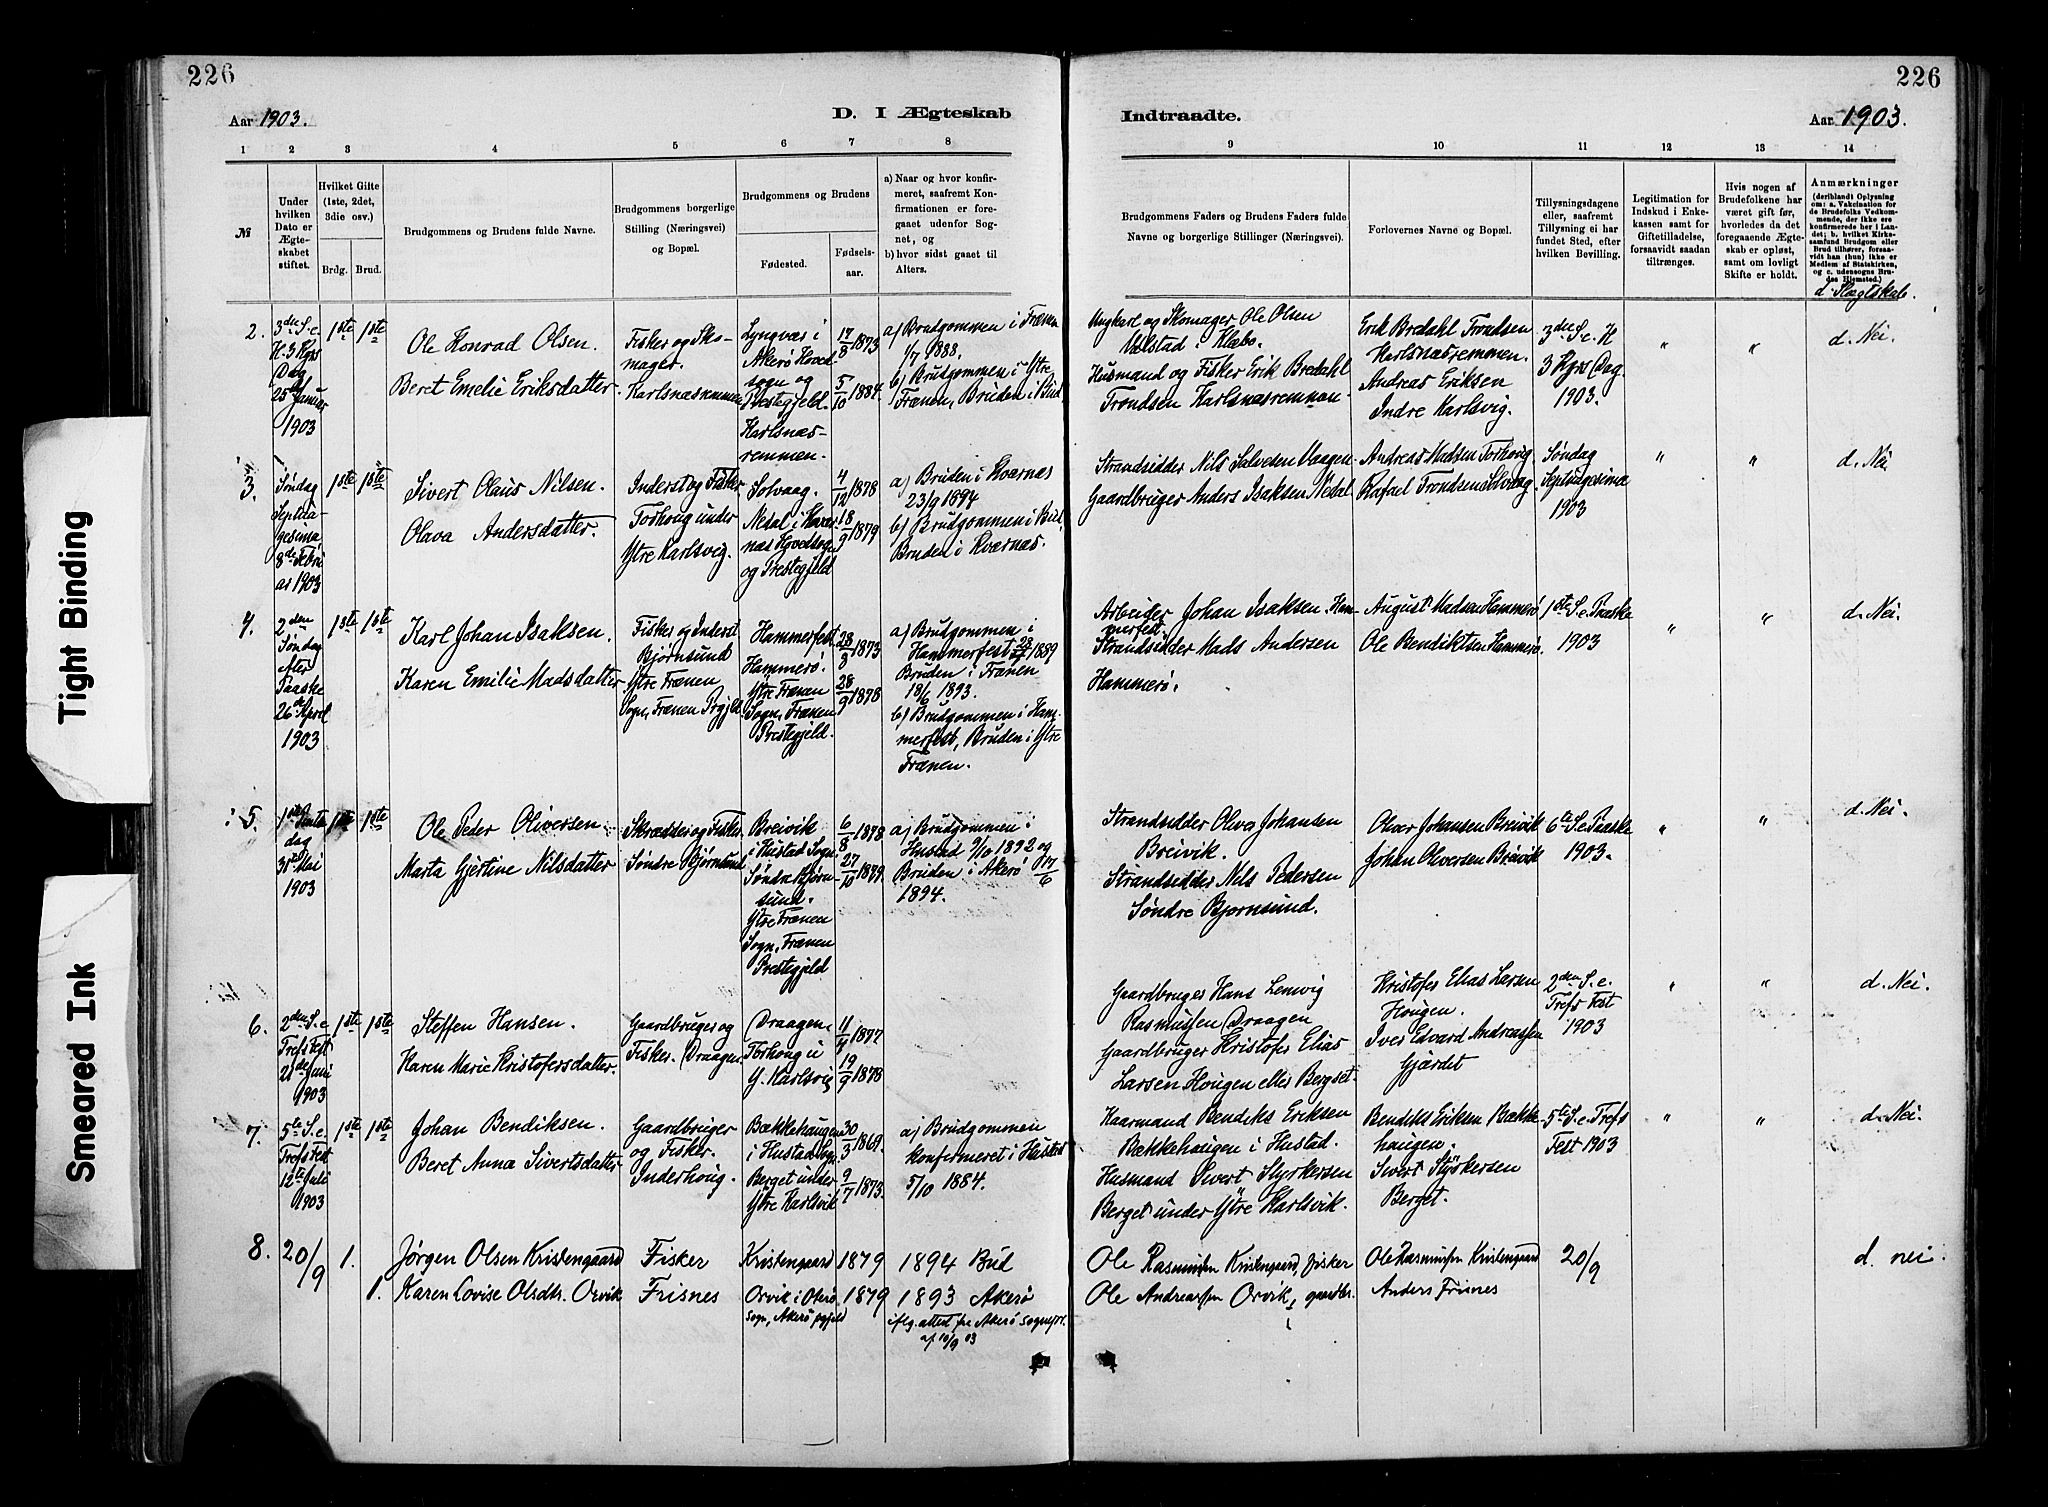 226
Aar 1903.
D. I Ægteskab
1 2 3 4 5 6 7 8
№
Under hvilken Dato er Ægteskabet stiftet.
Hvilket Gifte (1ste, 2det, 3die osv.)
Brdg. Brud.
Brudgommens og Brudens fulde Navne.
Brudgommens borgerlige Stilling (Næringsvei) og Bopæl.
Brudgommens og Brudens
Fødested.
Fødselsaar.
a) Naar og hvor konfirmeret, saafremt Konfirmationen er foregaaet udenfor Sognet, og
b) hvor sidst gaaet til Alters.
2.
3den S. e.
H. 3 Kgrs
Dag
25de Januar
1903
1ste 1ste
Ole Konrad Olsen.
Beret Emelie Eriksdatter.
Fisker og Sko-
mager.
Karlsnæsremmen
Lyngvær i
Akerø Hoved
sogn og
Prestegjeld.
Karlsnæs-
remmen.
17/8 1873
5/10 1884.
a) Brudgommen i Frænen
1/7 1888.
b) Brudgommen i Ytre
Frænen, Bruden i Bud
3.
Søndag
Septua-
gesima
8de Febru
ar 1903
1ste 1ste
Sivert Olaus Nilsen.
Olava Andersdatter.
Inderst og Fisker
Torhoug under
Ytre Karlsvig.
Solvaag.
Nedal i Kvær-
næs Hovedsogn
og Prestegjeld
4/12 1878
18/9 1879
a) Bruden i Kværnæs
23/9 1894
b) Brudgommen i Bud,
Bruden i Kværnæs.
4.
2den
Søndag
efter
Paaske
26de April
1903
1ste 1ste
Karl Johan Isaksen.
Karen Emilie Madsdatter
Fisker og Inderst
Bjørnsund
Ytre Frænen
Sogn, Frænen Prgjld
Hammerfest
Hammerø.
Ytre Frænen
Sogn, Frænen
Prestegjeld.
28/8 1873
28/9 1878
a) Brudgommen i
Hammerfest 1889
Bruden i Frænen
18/6 1893.
b) Brudgommen i Ham-
merfest, Bruden i Ytre
Frænen.
5.
1ste Pintse
dag
31te Mai
1903
1ste 1ste
Ole Peder Oliversen.
Marta Gjertine Nilsdatter
Skrædder og Fisker
Søndre Bjørnsund
Breivik
i Hustad Sogn.
Søndre Bjørn-
sund.
Ytre Frænen
Sogn, Frænen
Prestegjeld
6/8 1878
27/10 1879.
a) Brudgommen i
Hustad 9/10 1892 og
Bruden i Akerø 17/6
1894.
6.
2den S. e
Trefs Fest
21de Juni
1903
1ste 1ste
Steffen Hansen.
Karen Marie Kristofersdatter.
Gaardbruger og
Fisker. Draagen.
Draagen.
Torhoug u
Y. Karlsvig
11/4 1877
19/9 1878
7.
5te S. e.
Trefs Fest
12te Juli
1903
1ste 1ste
Johan Bendiksen.
Beret Anna Sivertsdatter
Gaardbruger
og Fisker.
Inderhoug.
Bækkehaugen
i Hustad Sogn.
Berget under
Ytre Karlsvik
30/3 1869.
9/7 1873.
a) Brudgommen
konfirmeret i Hustad
5/10 1884.
8.
20/9
1.
1.
Jørgen Olsen Kristengaard
Karen Lovise Olsdtr. Orvik
Fisker
Frisnes
Kristengaard
Orvik i Oterø
sogn, Akerø pgjeld
1879
1879
1894 Bud
1893 Akerø
iflg. attest fra Akerø sognepr.
af 10/9 03
226
Indtraadte.
Aar 1903.
9 10 11 12 13 14
Brudgommens Faders og Brudens Faders fulde Navne og borgerlige Stillinger (Næringsvei).
Forlovernes Navne og Bopæl.
Tillysningsdagene eller, saafremt Tillysning ei har fundet Sted, efter hvilken Bevilling.
Legitimation for Indskud i Enkekassen samt for Giftetilladelse, forsaavidt saadan tiltrænges.
Hvis nogen af Brudefolkene har været gift før, hvorledes da det foregaaende Ægteskab er opløst, samt om lovligt Skifte er holdt.
Anmærkninger (deriblandt Oplysning om: a. Vakcination for de Brudefolks Vedkommende, der ikke ere konfirmerede her i Landet; b. hvilket Kirkesamfund Brudgom eller Brud tilhører, forsaavidt han (hun) ikke er Medlem af Statskirken, og c. udensogns Brudes Hjemsted.)
d. Slægtskab.
Ungkarl og Skomager Ole Olsen
Ulstad i Klæbo.
Husmand og Fisker Erik Bredahl
Trondsen Karlsnæsremman.
Erik Bredahl Trondsen
Karlsnæsremmen.
Andreas Eriksen
Indre Karlsvig.
3den S. e. H
3 Kgrs Dag
1903.
" "
d. Nei.
Strandsidder Nils Salvesen Vaagen.
Gaardbruger Anders Isaksen Nedal
Andreas Madsen Torhoug.
Rafael Trondsen Solvaag.
Søndag
Septuagesima
1903
" "
d. Nei
Arbeider Johan Isaksen Ham-
merfest.
Strandsidder Mads Andersen
Hammerø.
August Madsen Hammerø
Ole Bendiktsen Hammerø.
1ste S. e. Paaske
1903
" "
d. Nei.
Strandsidder Oliver Johansen
Breivik.
Strandsidder Nils Pedersen
Søndre Bjørnsund.
Oliver Johansen Breivik
Johan Oliversen Breivik
6te S. e Paaske
1903.
" "
d. Nei.
Gaardbruger Hans Lemvig
Rasmussen Draagen
Gaardbruger Kristofer Elias
Larsen Hougen eller Bergset.
Kristofer Elias Larsen
Hougen.
Iver Edvard Andreassen
Gjærdet
2den S. e.
Trefs Fest
1903
" "
d. Nei.
Kaarmand Bendiks Eriksen
Bækkehaugen i Hustad.
Husmand Sivert Styrkersen
Berget under Ytre Karlsvik.
Bendiks Eriksen Bække-
haugen.
Sivert Styrkersen
Berget.
5te S. e. Trefs
Fest 1903
" "
d. Nei.
Ole Rasmussen Kristengaard, fisker
Ole Andreassen Orvik, gaardbr.
Ole Rasmussen Kristengaard
Anders Frisnes
20/9
d. nei.
Tight Binding
Smeared Ink